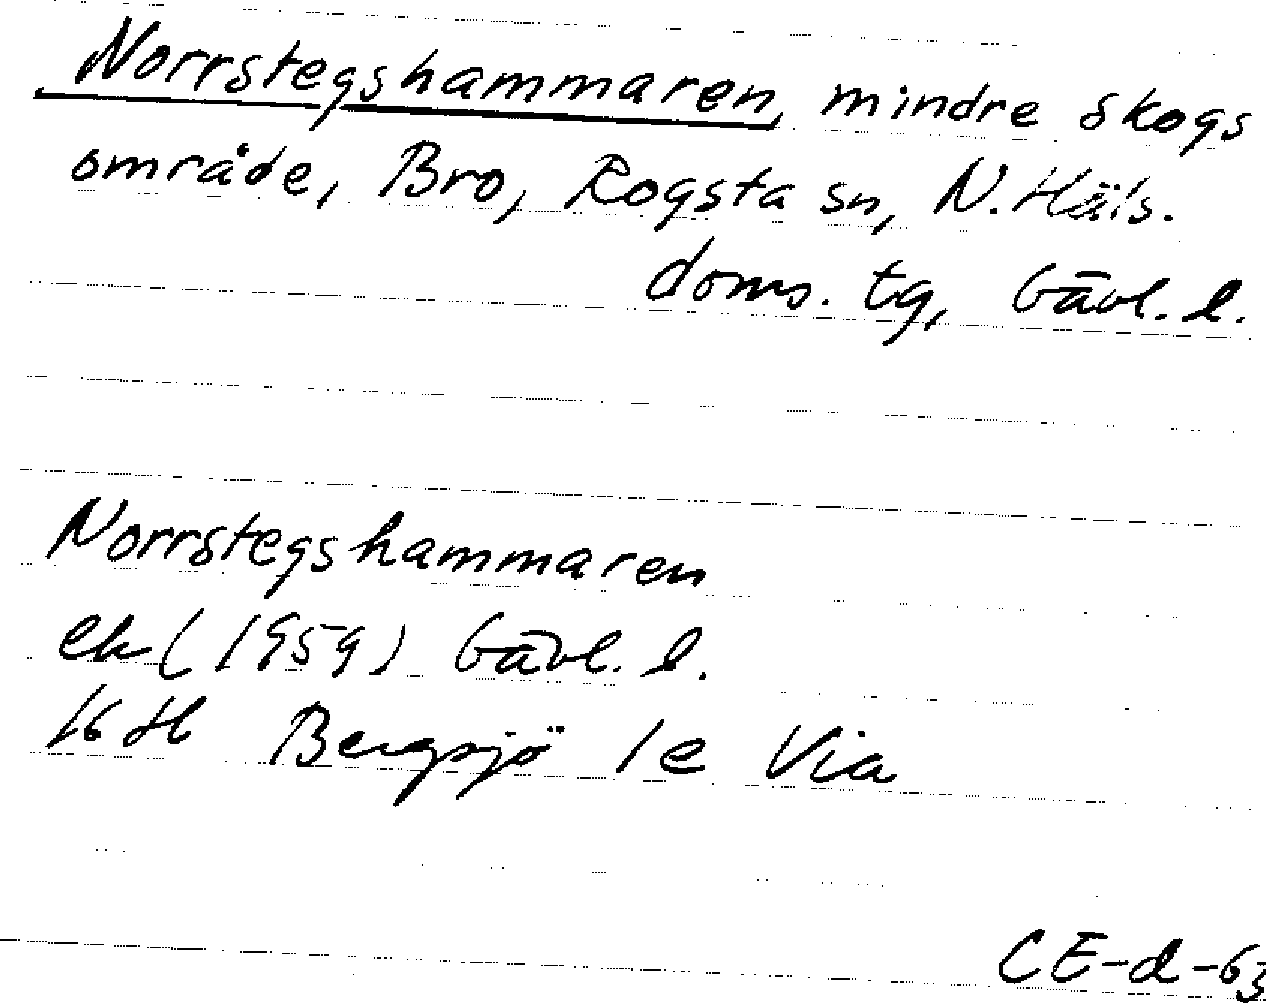 Norrstegshammaren, mindre skogs
område, Bro, Rogsta sn, N. Häls.
doms. tg, Gävl. l.
Norrstegshammaren
ek (1959) Gävl. l.
16 H Bergsjö 1e Via
CE-d-63